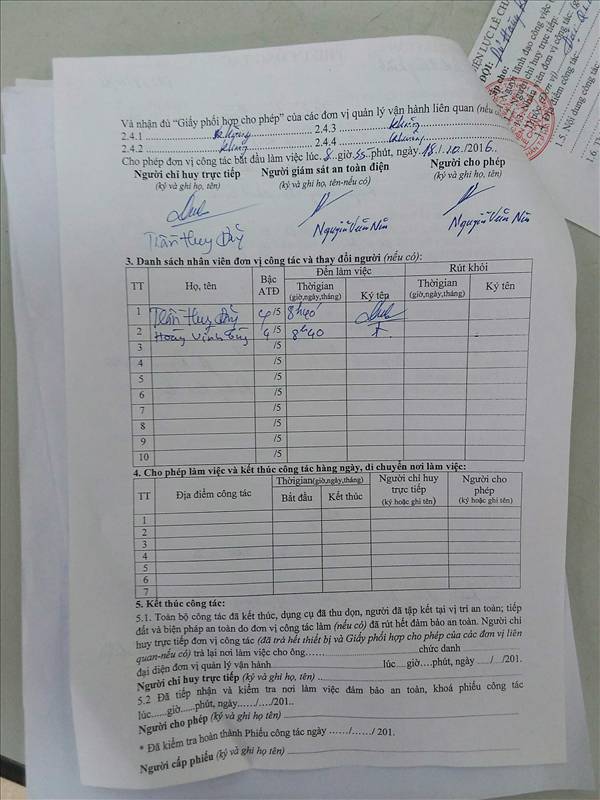 Và nhận đủ “Giấy phối hợp cho phép” của các đơn vị quản lý vận hành liên quan (nếu
2.4.1 ........ không ........ 2.4.3 ........ không
2.4.2 ........ không ........ 2.4.4 ........ không
Cho phép đơn vị công tác bắt đầu làm việc lúc. 8..giờ 55..phút, ngày.18./.10../2016..
Người chỉ huy trực tiếp Người giám sát an toàn điện Người cho phép
(ký và ghi họ, tên) (ký và ghi họ, tên-nếu có) (ký và ghi họ, tên)
Trần Huy Nguyễn Văn Nguyễn Văn
3. Danh sách nhân viên đơn vị công tác và thay đổi người (nếu có):
TT Họ, tên Bậc ATĐ Đến làm việc Rút khỏi
Thời gian (giờ,ngày,tháng) Ký tên Thời gian (giờ,ngày,tháng) Ký tên
1 Trần Huy 4/5 8h40
2 Hoàng 4/5 8h40
3 /5
4 /5
5 /5
6 /5
7 /5
8 /5
9 /5
10 /5
4. Cho phép làm việc và kết thúc công tác hàng ngày, di chuyển nơi làm việc:
TT Địa điểm công tác Thời gian(giờ,ngày,tháng) Người chỉ huy trực tiếp (ký hoặc ghi tên) Người cho phép (ký hoặc ghi tên)
Bắt đầu Kết thúc
1
2
3
4
5
6
7
5. Kết thúc công tác:
5.1. Toàn bộ công tác đã kết thúc, dụng cụ đã thu dọn, người đã tập kết tại vị trí an toàn; tiếp
đất và biện pháp an toàn do đơn vị công tác làm (nếu có) đã rút hết đảm bảo an toàn. Người chỉ
huy trực tiếp đơn vị công tác (đã trả hết thiết bị và Giấy phối hợp cho phép của các đơn vị liên
quan-nếu có) trả lại nơi làm việc cho ông……________chức danh
đại diện đơn vị quản lý vận hành________lúc....giờ....phút, ngày ...../..../201.
Người chỉ huy trực tiếp (ký và ghi họ, tên) ........
5.2 Đã tiếp nhận và kiểm tra nơi làm việc đảm bảo an toàn, khoá phiếu công tác
lúc......giờ......phút, ngày....../...../201..
Người cho phép (ký và ghi họ tên) ________
* Đã kiểm tra hoàn thành Phiếu công tác ngày ……/……/ 201.
Người cấp phiếu (ký và ghi họ tên) ________
ĐIỆN LỰC LÊ
ĐỘI:
1.5 Nội dung công tác:
1.6.